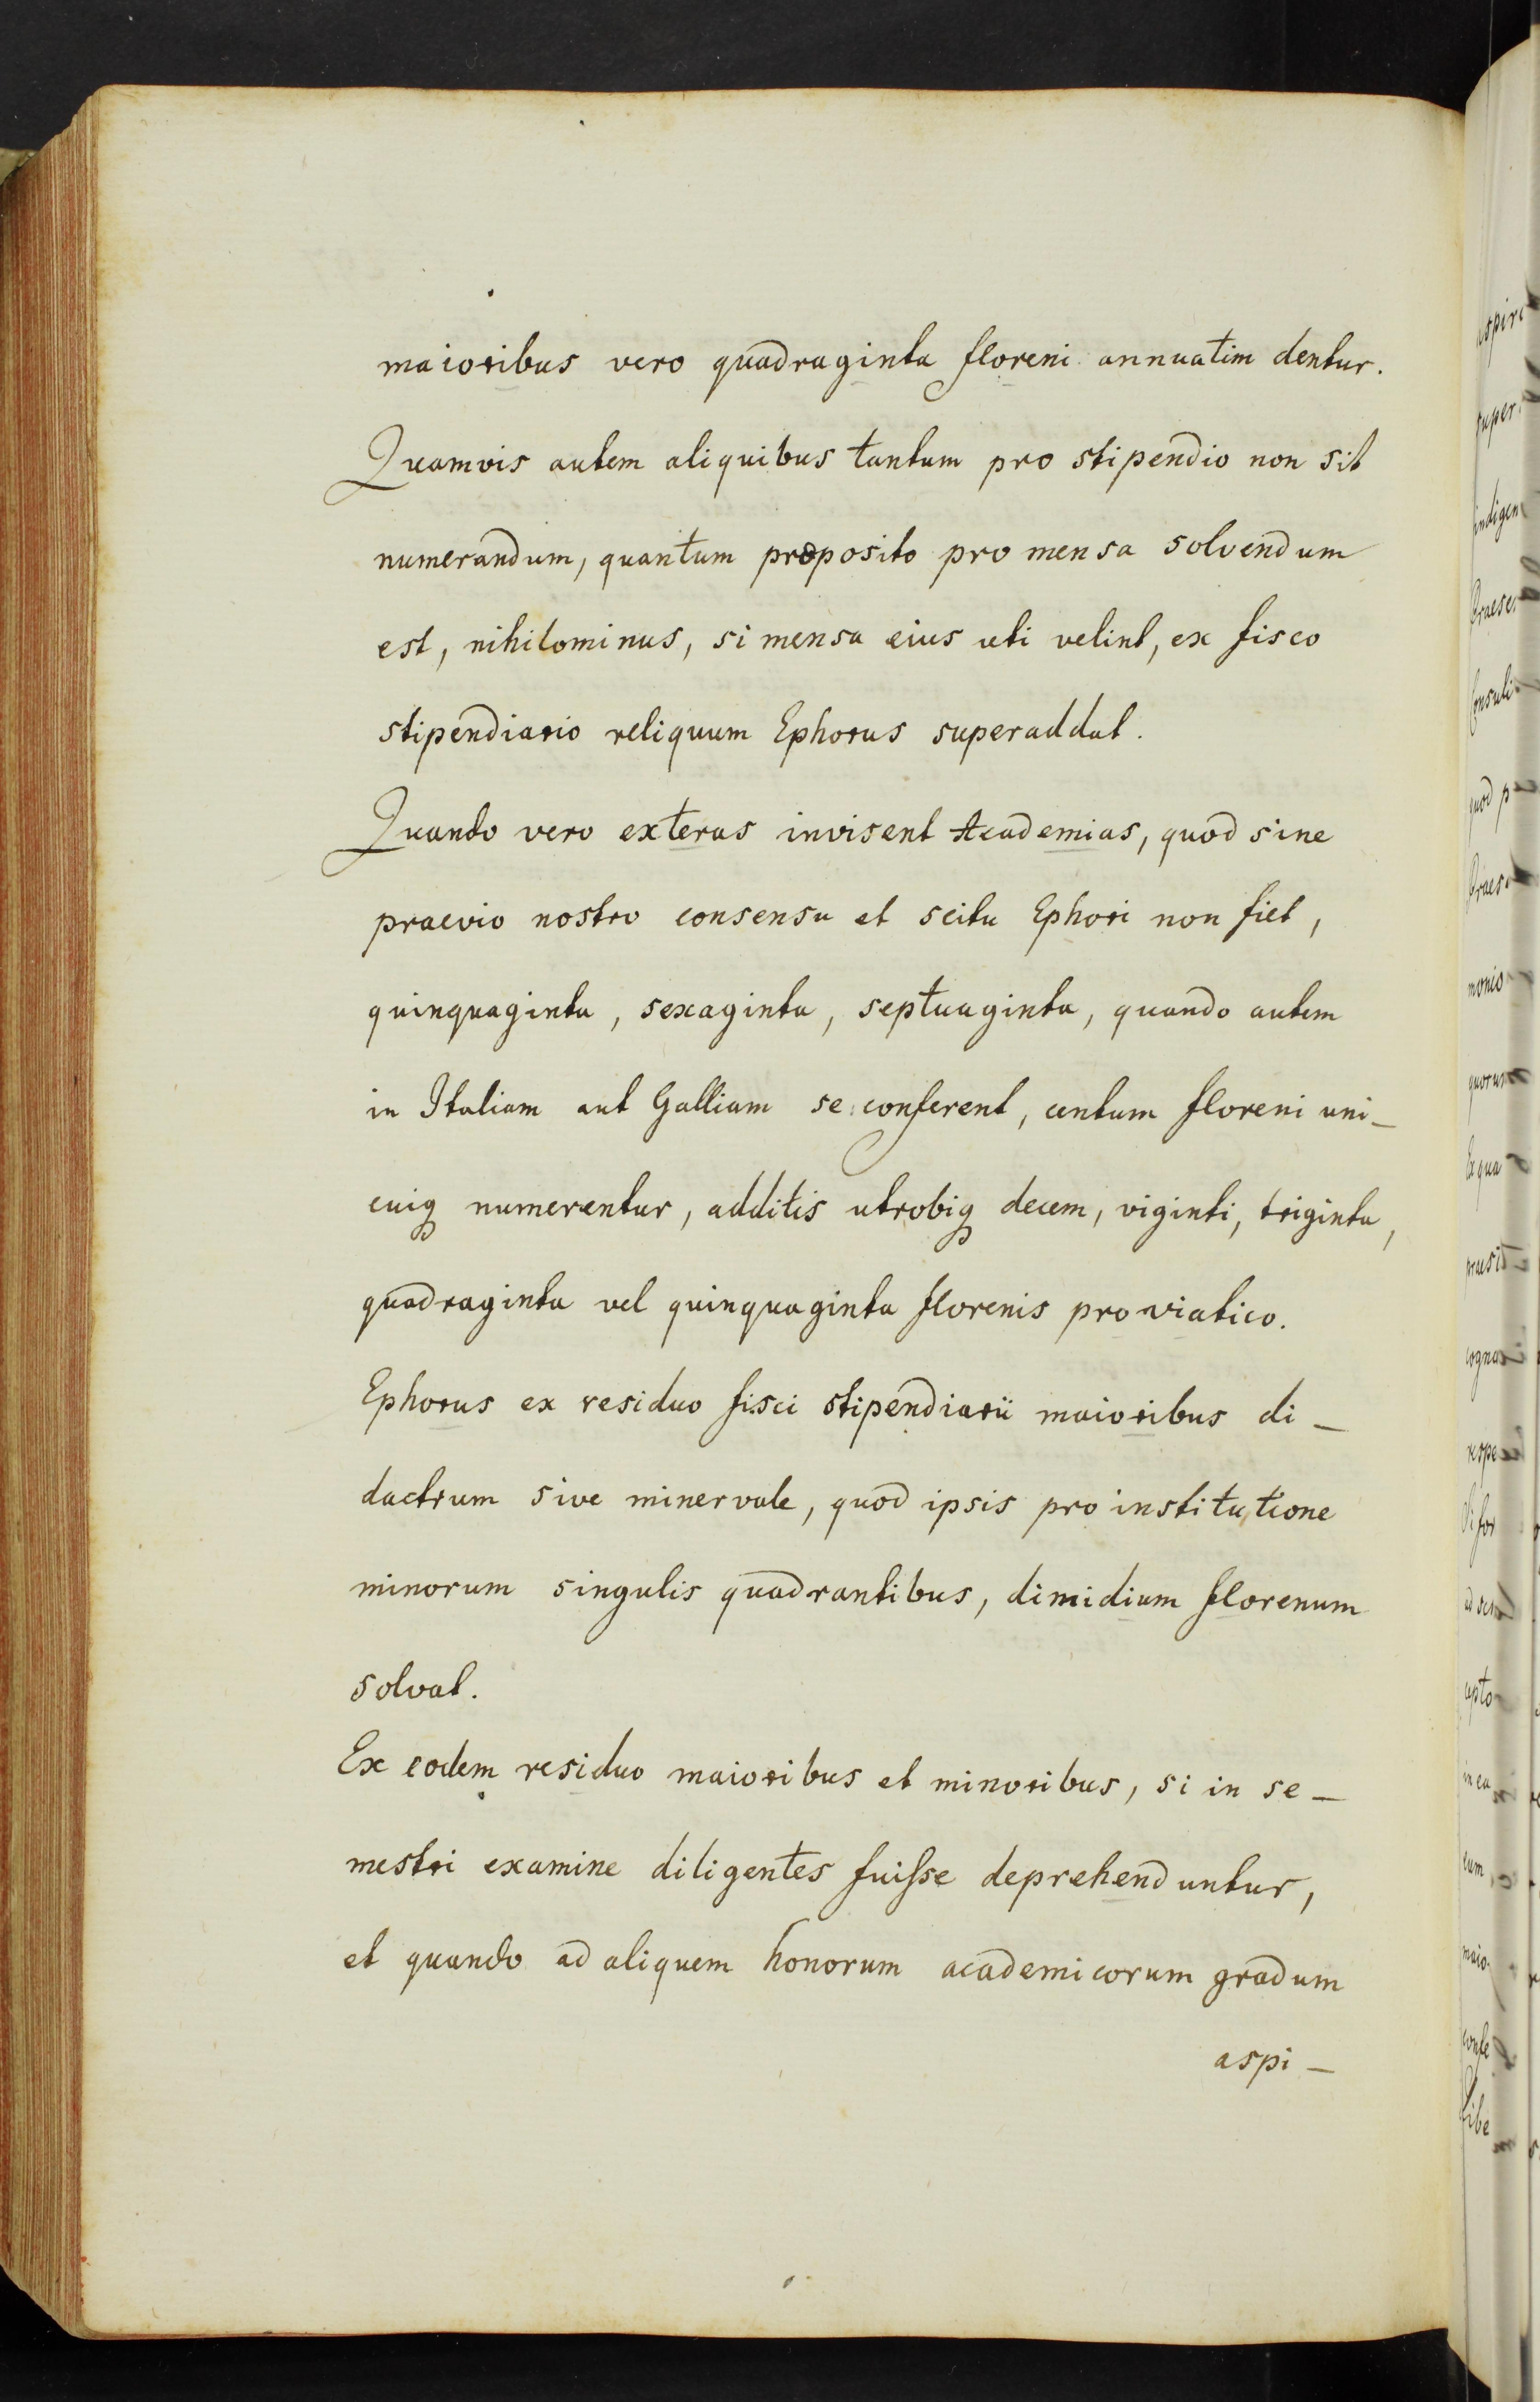 maioribus vero quadraginta floreni annuatim dentur.
Quamvis autem aliquibus tantum pro stipendio non sit
numerandum, quantum proposito pro mensa solvendum
est, nihilominus, si mensa eius uti velint, ex fisco
stipendiario reliquum Ephorus superaddat.
Quando vero exteras invisent Academias, quod sine
praevio nostro consensu et scitu Ephori non fiet,
quinquaginta, sexaginta, septuaginta, quando autem
in Italiam aut Galliam se conferent, centum floreni uni-
cuiq numerentur, additis utrobiq decem, viginti, triginta,
quadraginta vel quinquaginta florenis pro viatico.
Ephorus ex residuo fisci stipendiarii maioribus di-
dactrum sive minervale, quod ipsis pro institutione
minorum singulis quadrantibus, dimidium florenum
solvat.
Ex eodem residuo maioribus et minoribus, si in se-
mestri examine diligentes fuisse deprehenduntur,
et quando ad aliquem honorum academicorum gradum
aspi-